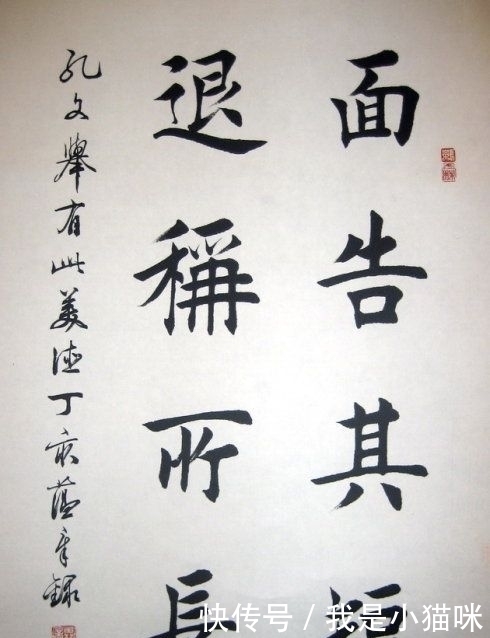 面告其短
退稱所長
孔文舉有此美德丁亥蕴章錄
快传号 / 我是小猫咪